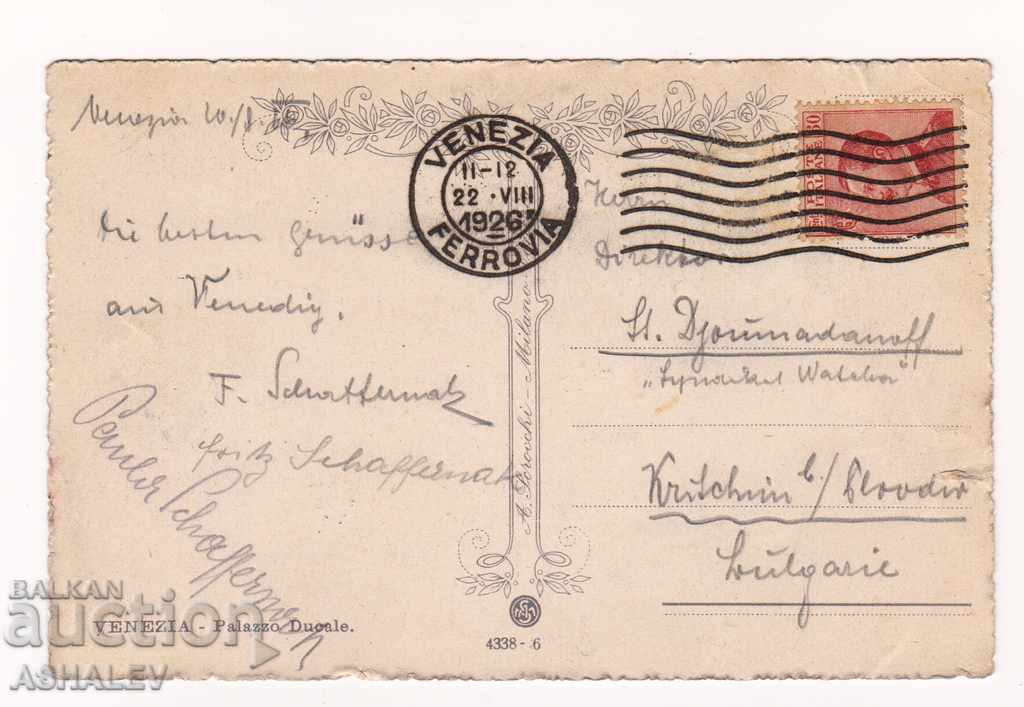 Venezia 20/8.
Die besten Grüsse
aus Venedig.
F. Schaffernak
Fritz Schaffernak
Schaffernak
VENEZIA - Palazzo Ducale.
VENEZIA
11-12
22 · VIII
1926
FERROVIA
A. Scrocchi - Milano
4338 - 6
POSTE
ITALIANE
60
Herrn
Direktor
St. Djoumadanoff
Kritchim b/Plovdiv
Bulgarie
BALKAN
auction
ASHALEV